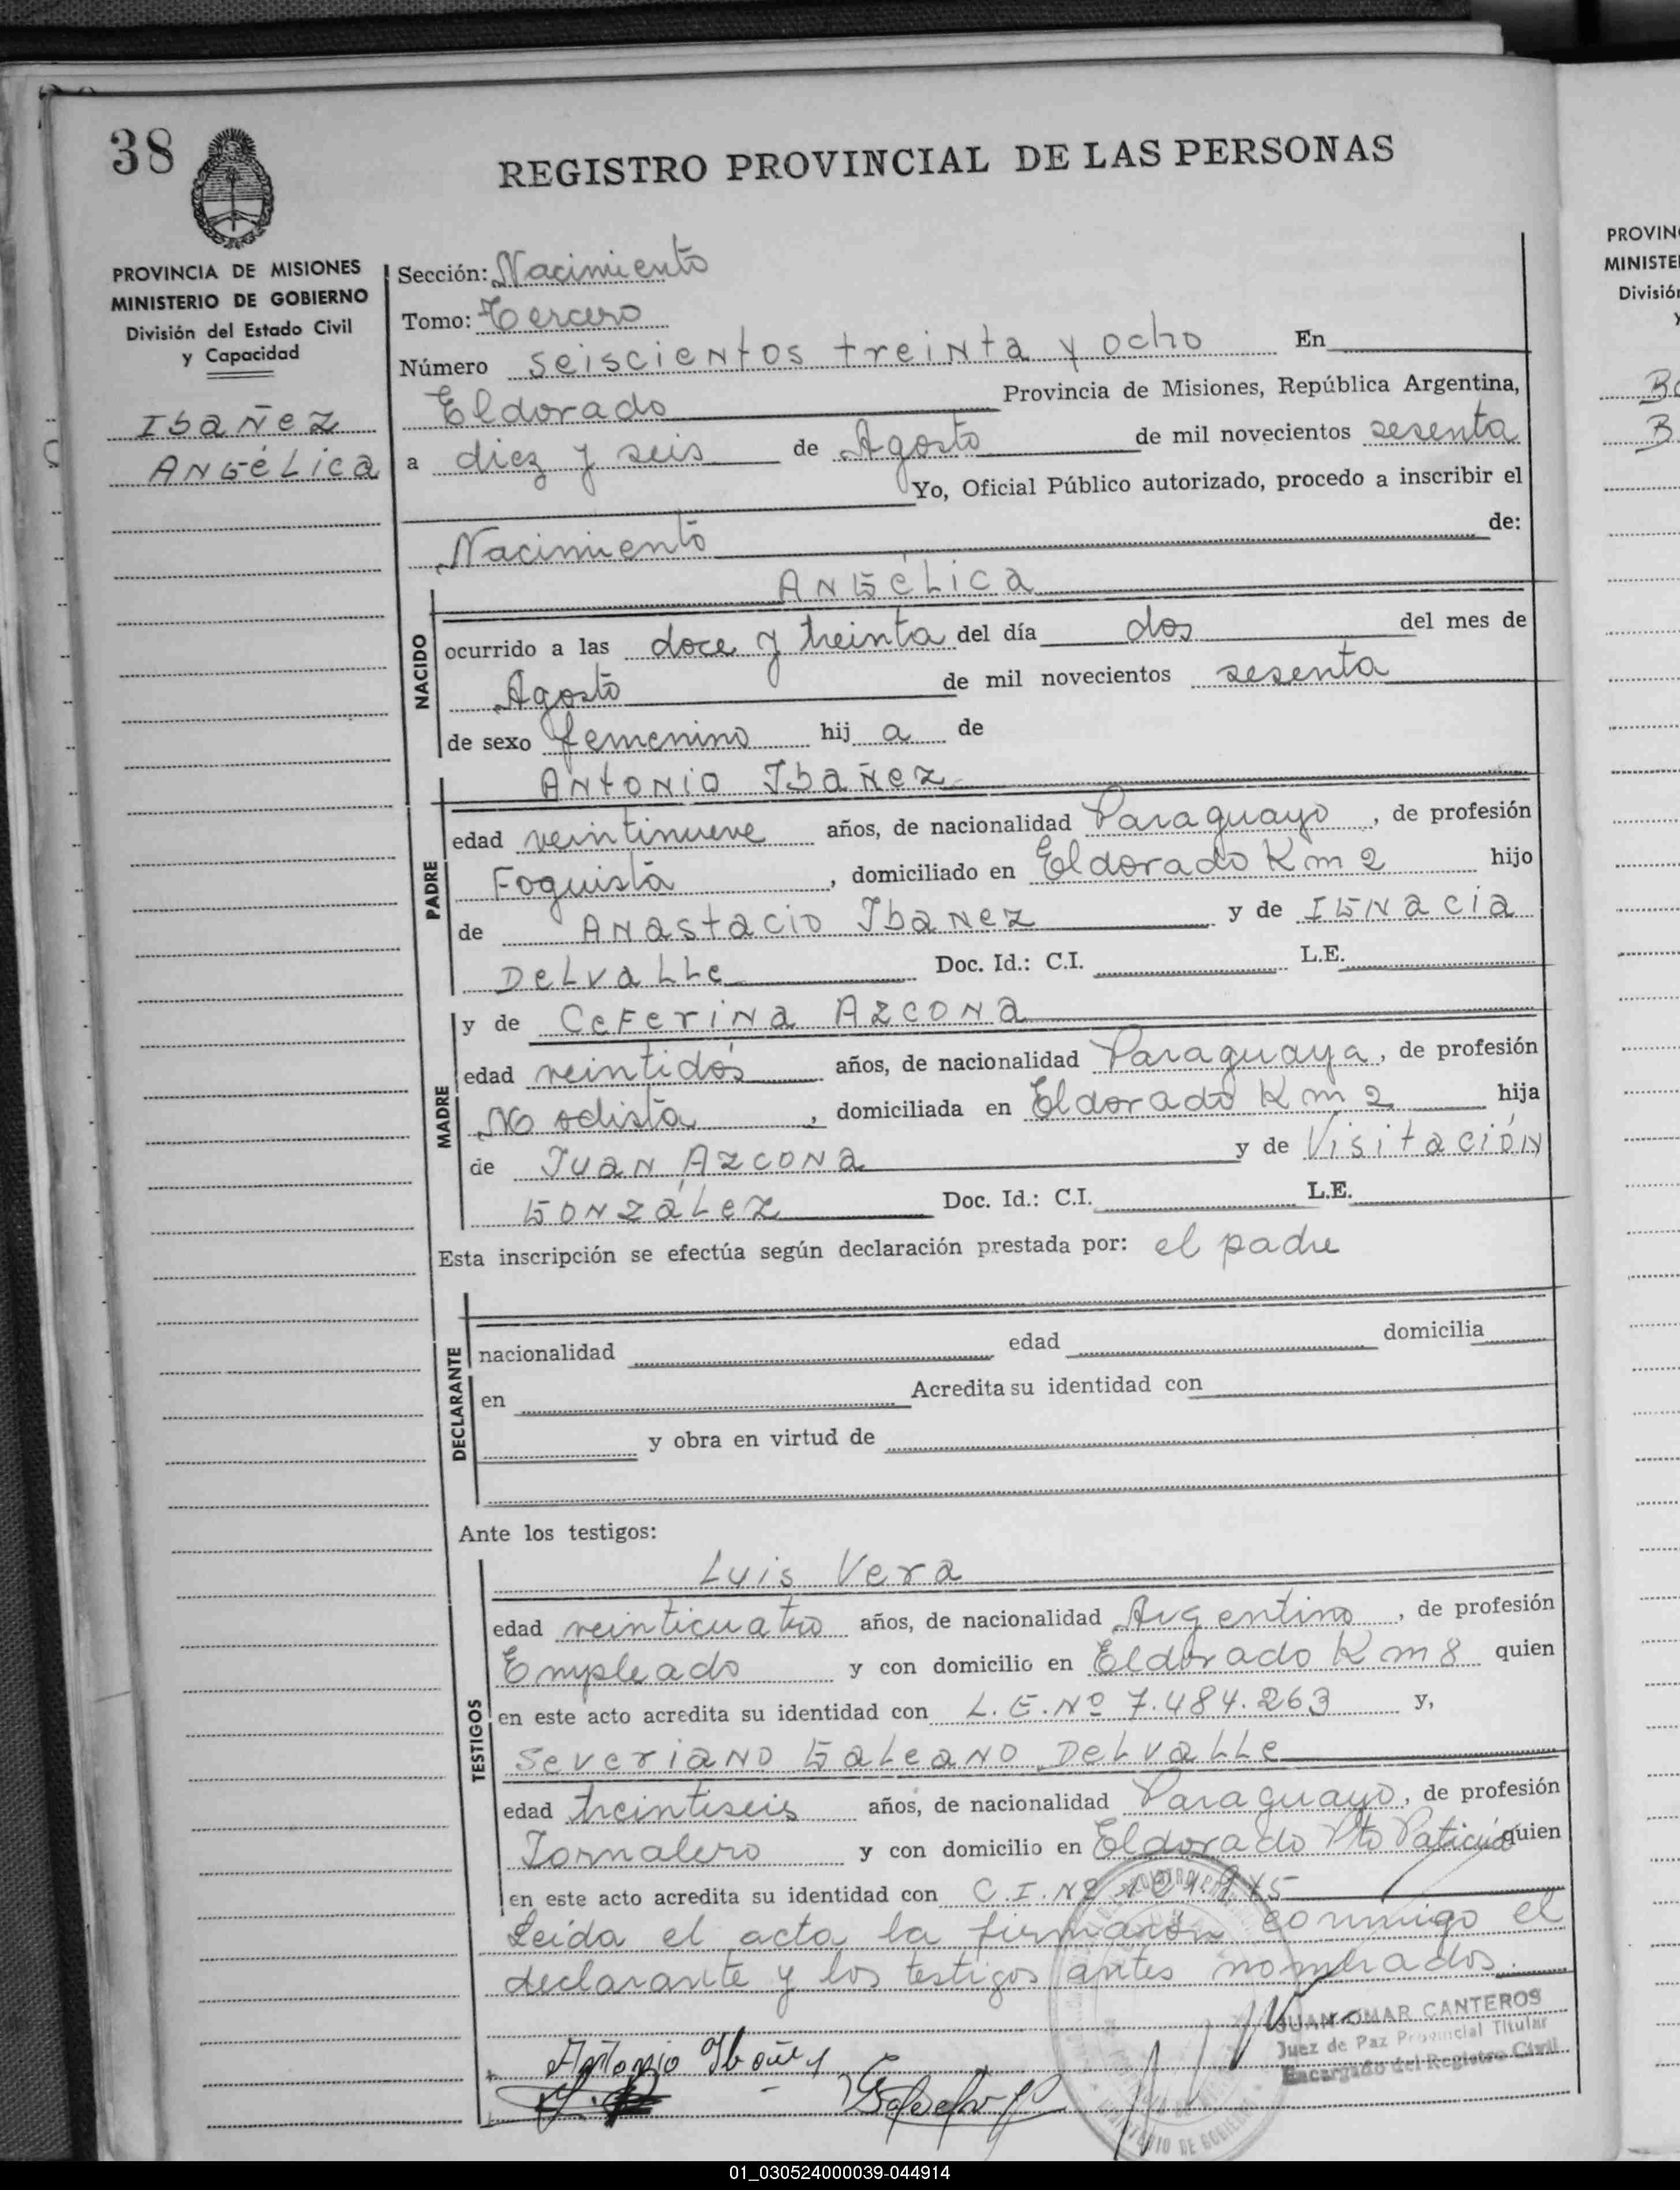 38
REGISTRO PROVINCIAL DE LAS PERSONAS
PROVINCIA DE MISIONES
MINISTERIO DE GOBIERNO
División del Estado Civil
y Capacidad
Ibañez
Angélica
Sección: Nacimiento
Tomo: Tercero
Número seiscientos treinta y ocho En
Eldorado Provincia de Misiones, República Argentina,
a diez y seis de Agosto de mil novecientos sesenta
Yo, Oficial Público autorizado, procedo a inscribir el
Nacimiento de:
Angélica
NACIDO
ocurrido a las doce y treinta del día dos del mes de
Agosto de mil novecientos sesenta
de sexo femenino hij a de
Antonio Ibañez
PADRE
edad veintinueve años, de nacionalidad Paraguayo, de profesión
Foguista, domiciliado en Eldorado Km 2 hijo
de Anastacio Ibanez y de Ignacia
Delvalle Doc. Id.: C.I. L.E.
MADRE
y de Ceferina Azcona
edad veintidós años, de nacionalidad Paraguaya, de profesión
Modista, domiciliada en Eldorado Km 2 hija
de Juan Azcona y de Visitación
González Doc. Id.: C.I. L.E.
Esta inscripción se efectúa según declaración prestada por: el padre
DECLARANTE
nacionalidad edad domicilia
en Acredita su identidad con
y obra en virtud de
Ante los testigos:
TESTIGOS
Luis Vera
edad veinticuatro años, de nacionalidad Argentino, de profesión
Empleado y con domicilio en Eldorado Km 8 quien
en este acto acredita su identidad con L.E. Nº 7.484.263 y,
Severiano Galeano Delvalle
edad treintiseis años, de nacionalidad Paraguayo, de profesión
Jornalero y con domicilio en Eldorado Pto Paticuá quien
en este acto acredita su identidad con C.I. Nº
Leída el acta la firmarón conmigo el
declarante y los testigos antes nombrados.
JUAN OMAR CANTEROS
Juez de Paz Provincial Titular
Encargado del Registro Civil
Antonio Ibañez
PROVIN
MINISTE
Divisió
01_030524000039-044914